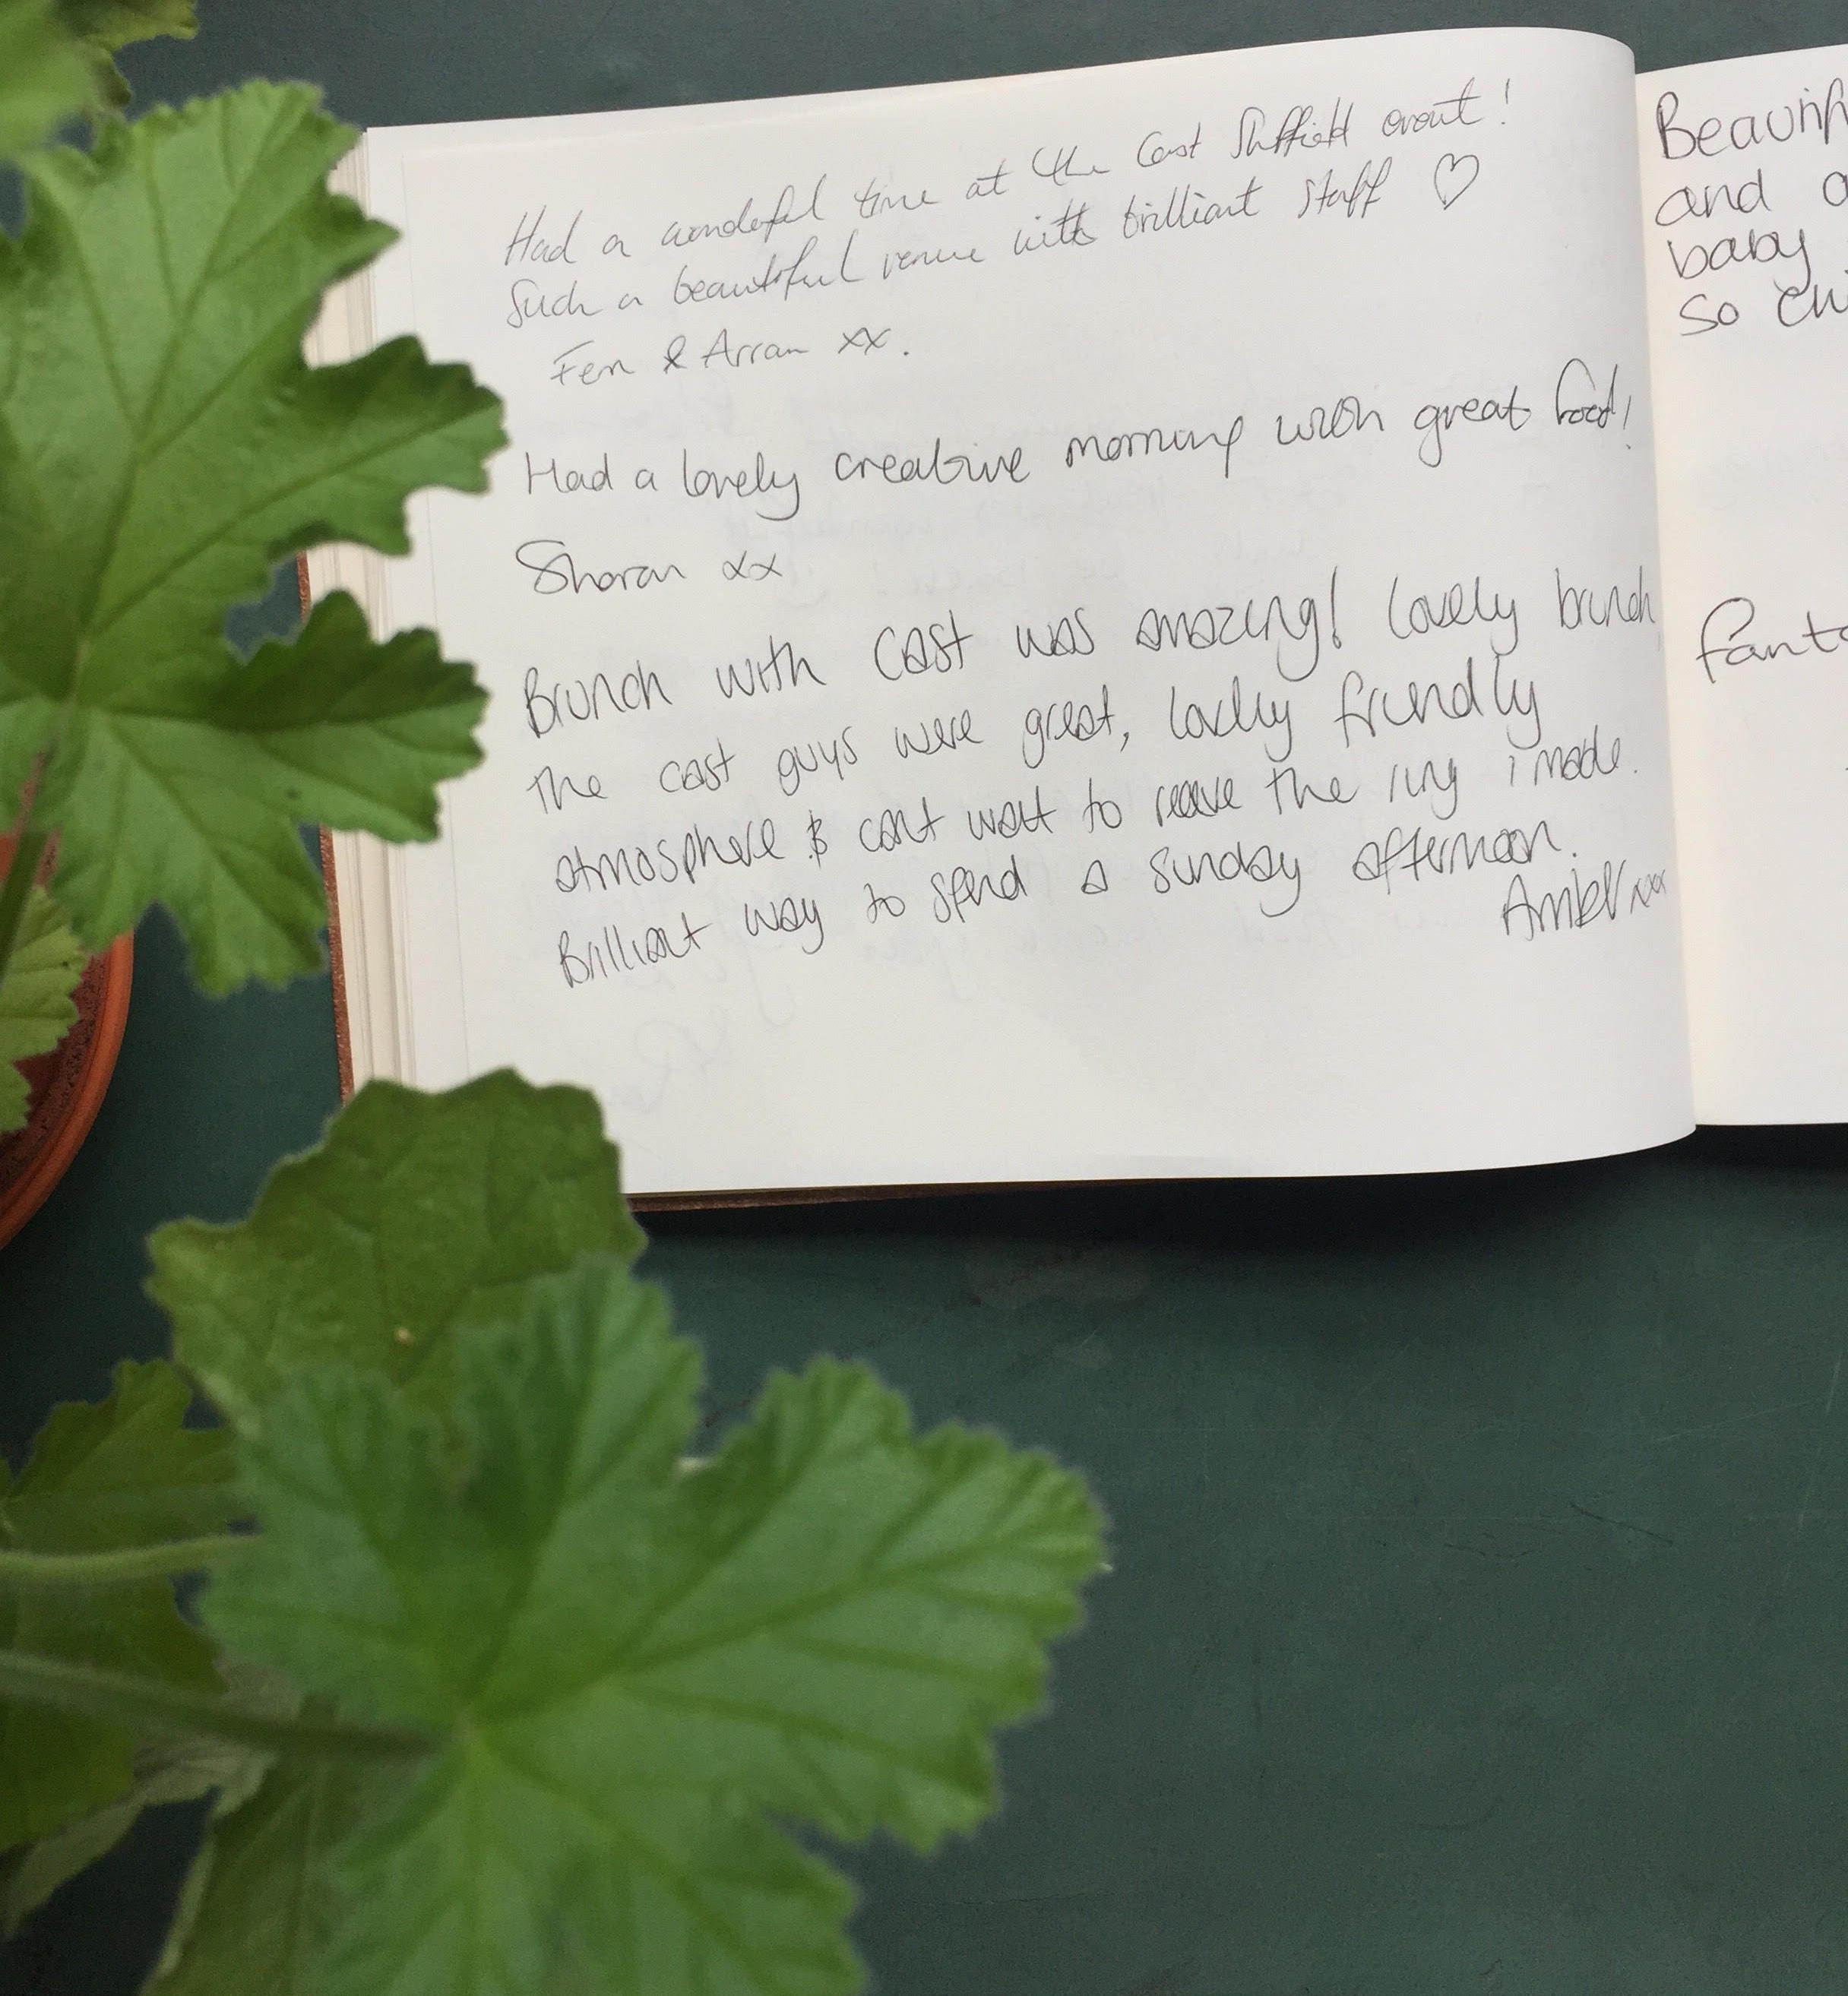 Had a wondeful time at the Cast Sheffield event!
Such a beautiful venue with brilliant staff ♡
Fern & Arran xx.
Had a lovely creative morning with great food!
Sharan xx
Brunch with Cast was amazing! Lovely brunch,
the cast guys were great, lovely friendly
atmosphere & cant wait to receive the ring i made.
Brilliant way to spend a sunday afternoon.
Amber xxx
and
baby
so